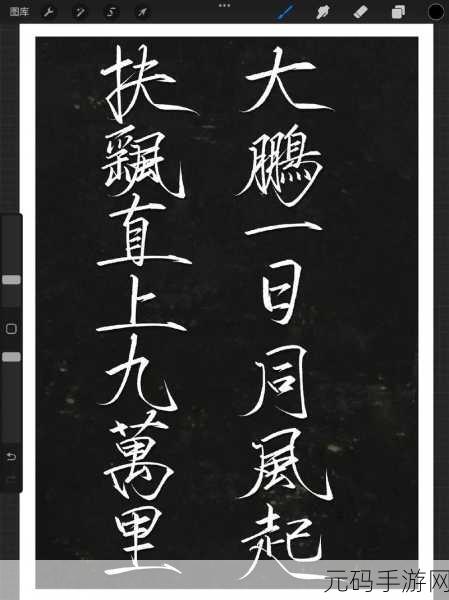 图库
大鵬一日同風起
扶飄直上九萬里
元码手游网